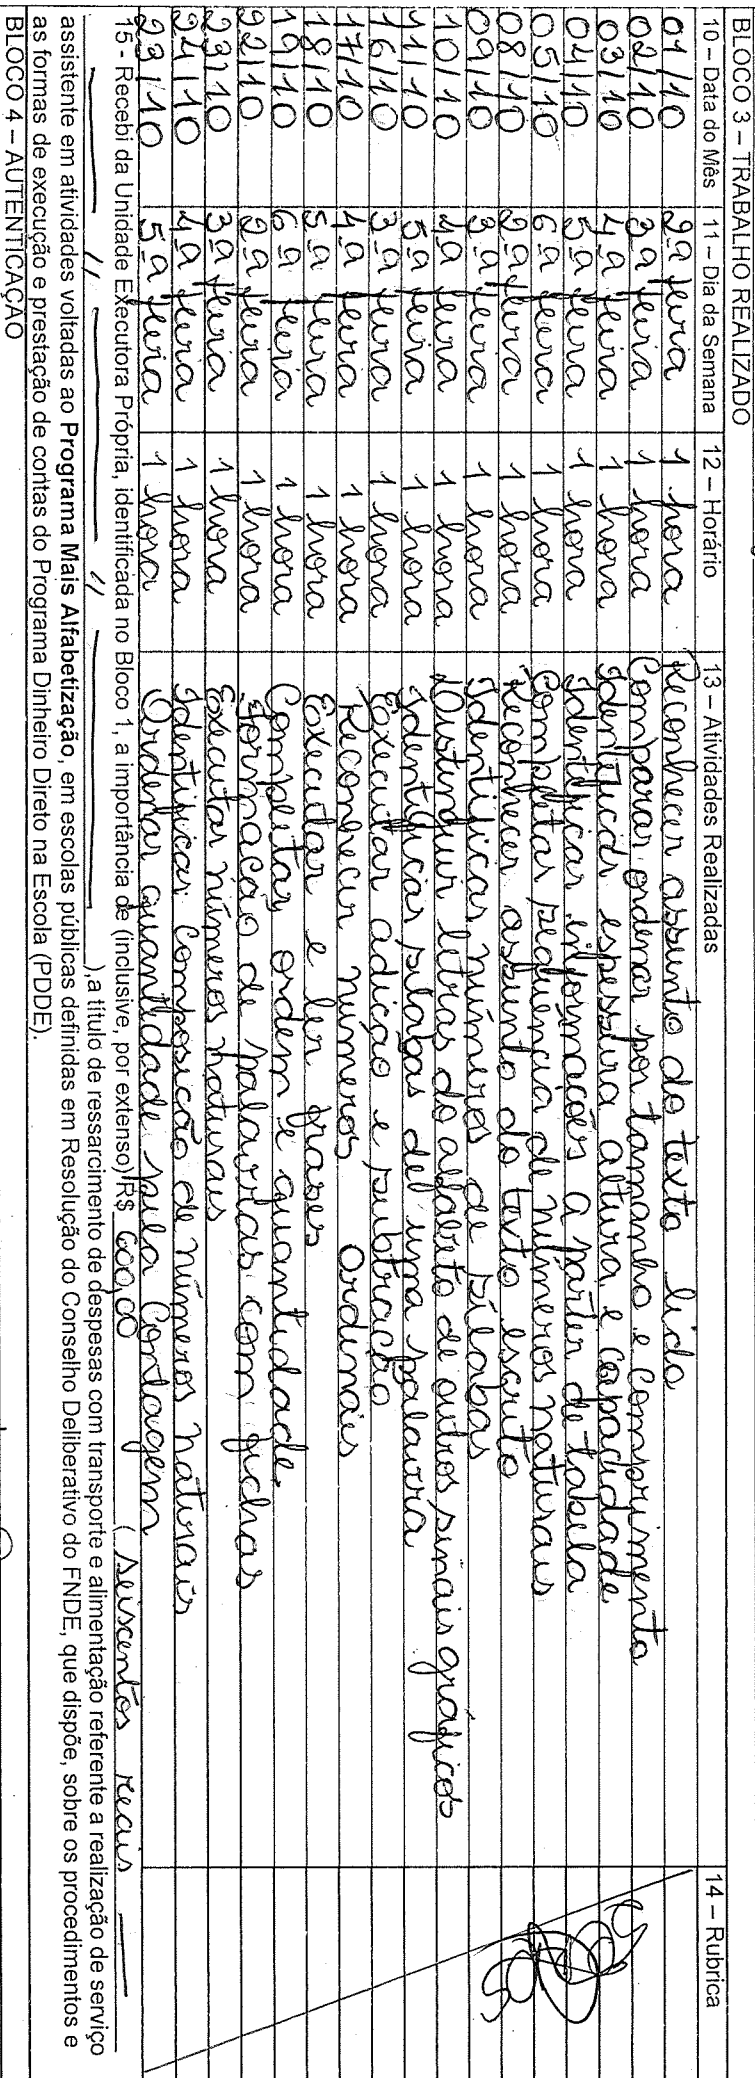 BLOCO 3 – TRABALHO REALIZADO
10 – Data do Mês 11 – Dia da Semana 12 – Horário 13 – Atividades Realizadas 14 – Rubrica
01/10 2ª feira 1 hora Reconhecer assunto do texto lido
02/10 3ª feira 1 hora Comparar ordenar por tamanho e comprimento
03/10 4ª feira 1 hora Identificar espessura altura e capacidade
04/10 5ª feira 1 hora Identificar informações a partir de tabela
05/10 6ª feira 1 hora Completar sequencia de números naturais
08/10 2ª feira 1 hora Reconhecer assunto do texto escrito
09/10 3ª feira 1 hora Identificar números de sílabas
10/10 4ª feira 1 hora Distinguir letras do alfabeto de outros sinais gráficos
11/10 5ª feira 1 hora Identificar sílabas de uma palavra
16/10 3ª feira 1 hora Executar adição e subtração
17/10 4ª feira 1 hora Reconhecer números Ordinais
18/10 5ª feira 1 hora Executar e ler frases
19/10 6ª feira 1 hora Completar ordem e quantidade
22/10 2ª feira 1 hora Formação de palavras com fichas
23/10 3ª feira 1 hora Executar números naturais
24/10 4ª feira 1 hora Identificar composição de números naturais
23/10 5ª feira 1 hora Ordenar quantidade pela Contagem
15 - Recebi da Unidade Executora Própria, identificada no Bloco 1, a importância de (inclusive, por extenso) R$ 600,00 ( seiscentos reais
),a título de ressarcimento de despesas com transporte e alimentação referente a realização de serviço
assistente em atividades voltadas ao Programa Mais Alfabetização, em escolas públicas definidas em Resolução do Conselho Deliberativo do FNDE, que dispõe, sobre os procedimentos e
as formas de execução e prestação de contas do Programa Dinheiro Direto na Escola (PDDE).
BLOCO 4 – AUTENTICAÇÃO